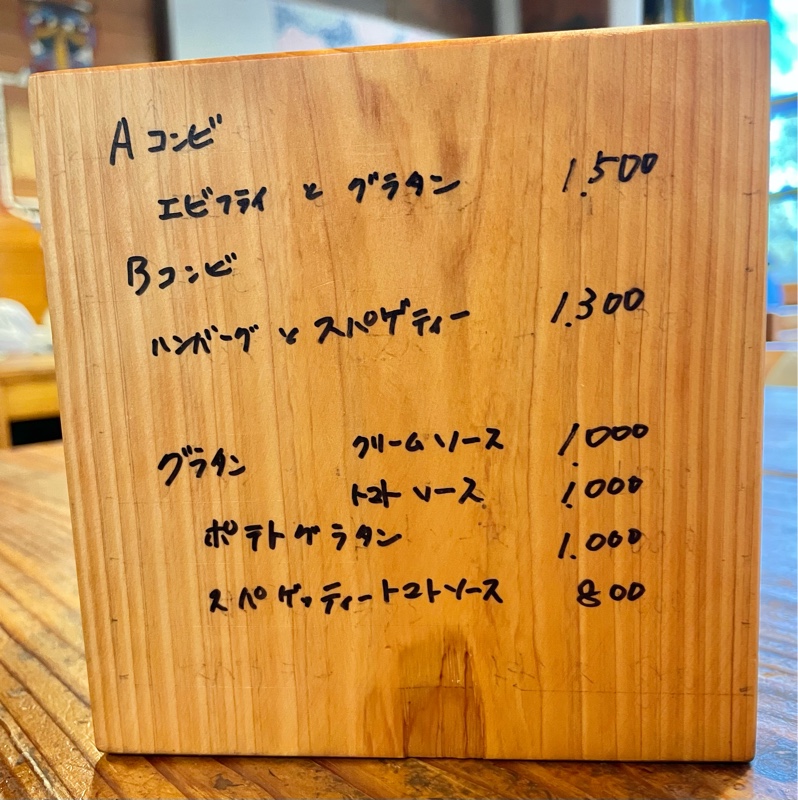 Aコンビ
エビフライ と グラタン 1.500
Bコンビ
ハンバーグ と スパゲティー 1.300
グラタン クリームソース 1.000
トマトソース 1.000
ポテトグラタン 1.000
スパゲッティートマトソース 800